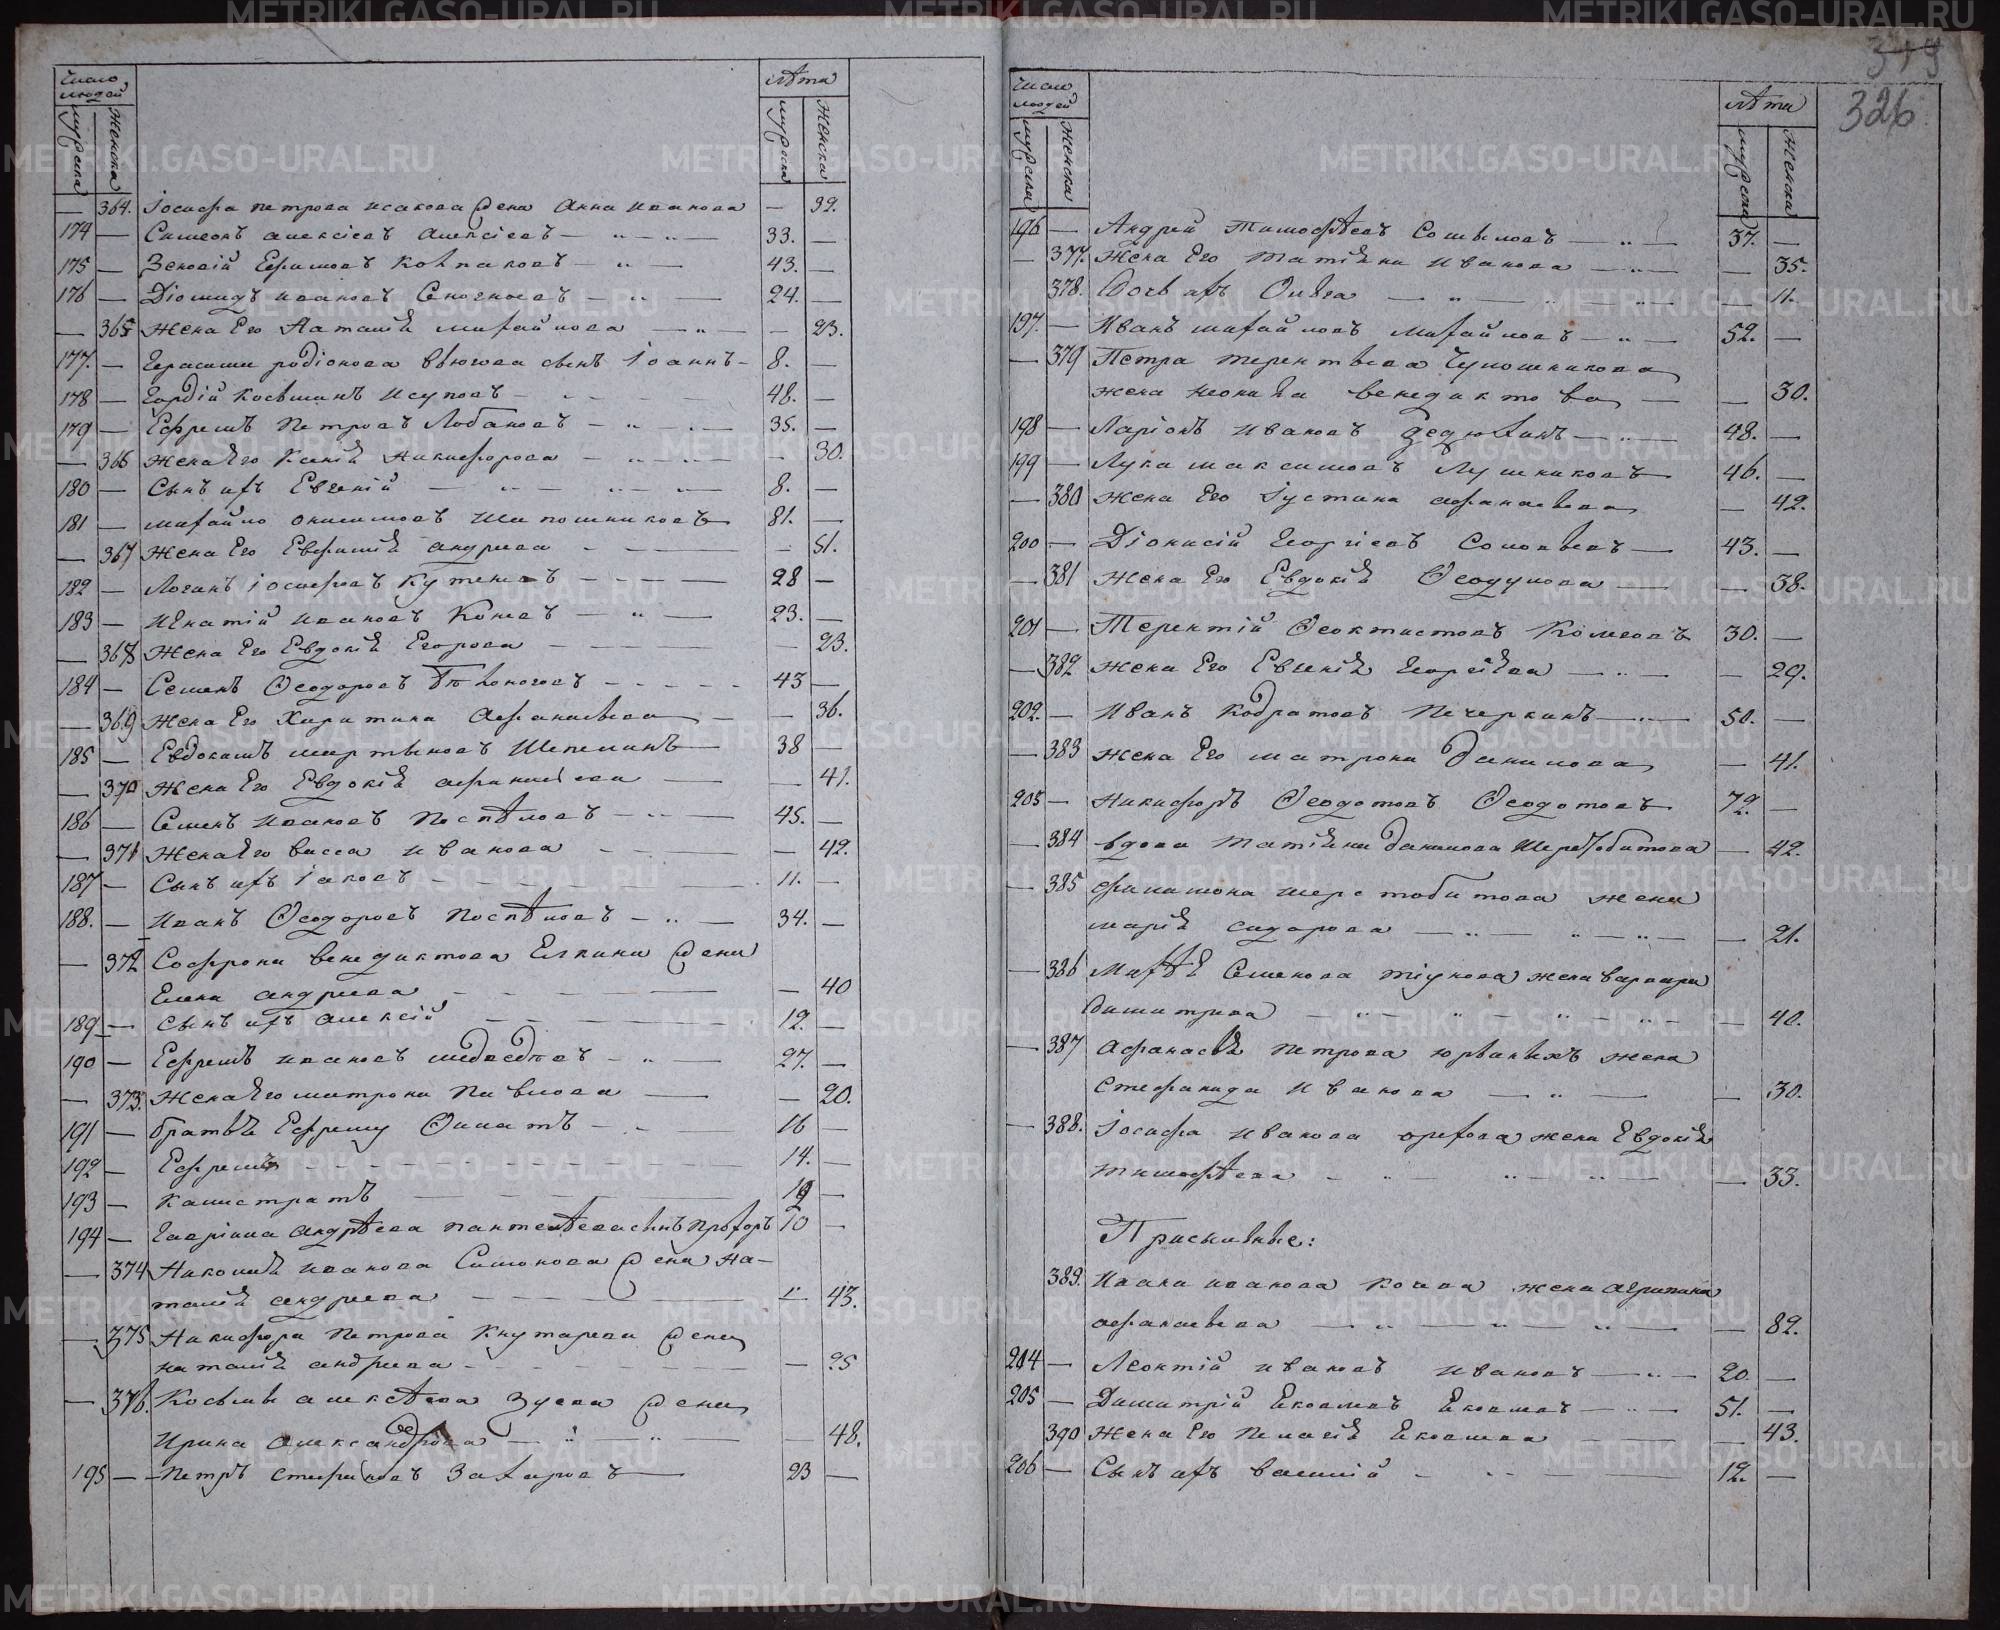 Число людей
Лѣта
мужска женска
мужска женска
— 364. Іосифа Петрова Исакова жена Анна Иванова — 39.
174 — Симеонъ Алексіевъ Алексіевъ — 33. —
175 — Зеновій Ефимовъ Колпаковъ — 43. —
176 — Діомидъ Ивановъ — 24. —
— 365 Жена Его Наталія Михайлова — 23.
177. — Герасима Родіонова Вьюгова сынъ Іоаннъ — 8. —
178 — Гордій Косьминъ Исуповъ — 48. —
179 — Ефремъ Петровъ Лобановъ — 35. —
— 366 Жена Его Ксенія Никифорова — 30.
180 — Сынъ ихъ Евгеній — 8. —
181 — Михайло Онисимовъ Шапошниковъ 81. —
— 367 Жена Его Евфимія Андреева — 51.
182 — Логинъ Іосифовъ 28 —
183 — Игнатій Ивановъ 23. —
— 368 Жена Его Евдокія Егорова — 23.
184 — Семенъ Ѳеодоровъ Бѣлоноговъ — 43 —
— 369 Жена Его Харитина Афанасьева — 36.
185 — Евдокимъ Мартыновъ Шепелинъ 38 —
— 370 Жена Его Евдокія — 41.
186 — Семенъ Ивановъ Поспѣловъ — 45. —
— 371 Жена Его Васса Иванова — 42.
187 — Сынъ ихъ Іаковъ — 11. —
188. — Иванъ Ѳеодоровъ Поспѣловъ — 34. —
— 372 Софрона Венедиктова Елкина жена
Елена Андреева — 40
189 — Сынъ ихъ Алексій 12. —
190 — Ефремъ Ивановъ Медведевъ — 27. —
— 373. Жена Его Матрона Павлова — 20.
191 — Братья Ефрему 16 —
192 — Ефремъ 14. —
193 — Калистратъ —
194 — Гавріила Андрѣева Пантелѣева сынъ Прохоръ 10 —
— 374 Николая Иванова Симонова жена На-
талія Андреева — 43.
— 375 Никифора Петрова жена
Наталія Андреева — 25
— 376. Косьмы Алексѣева Зуева жена
Ирина Александрова — 48.
195 — Петръ Стефановъ Захаровъ — 23 —
379
326
Число людей
Лѣта
мужска женска
мужска женска
196 — Андрей Тимофѣевъ — 37. —
— 377. Жена Его Татіяна Иванова — 35.
378. Дочь ихъ Ольга — 11.
197. — Иванъ Михайловъ Михайловъ — 52. —
— 379 Петра Терентьева Чупошникова
жена Неонила Венедиктова — 30.
198 — Ларіонъ Ивановъ Дедюхинъ — 48. —
199 — Лука Максимовъ Лушниковъ — 46. —
— 380 Жена Его Іустина Афанасьева — 42.
200 — Діонисій Георгіевъ Соловьевъ — 43. —
— 381 Жена Его Евдокія Ѳеодулова — 38.
201 — Терентій Ѳеоктистовъ 30. —
— 382 Жена Его Евгенія — 29.
202. — Иванъ Кодратовъ Печеркинъ — 50. —
— 383 Жена Его Матрона Данилова — 41.
203 — Никифоръ Ѳеодотовъ Ѳеодотовъ 72. —
— 384 Вдова Татіяна Данилова Шерстобитова — 42.
— 385 Филимона Шерстобитова жена
Марія Сидорова — 21.
— 386 Матѳѣя Семенова Тіунова жена Варвара
Димитрева — 40.
— 387 Афанасія Петрова Юрьвыхъ жена
Стефанида Иванова — 30.
— 388. Іосифа Иванова Орехова жена Евдокія
Тимофѣева — 33.
Присыльные:
389. Ивана Иванова жена Агрипина
Афанасьева — 82.
204 — Леонтій Ивановъ Ивановъ — 20. —
205 — Димитрій Яковлевъ Яковлевъ — 51. —
390 Жена Его Пелагія Яковлева — 43.
206 — Сынъ ихъ Василій — 12. —
METRIKI.GASO-URAL.RU